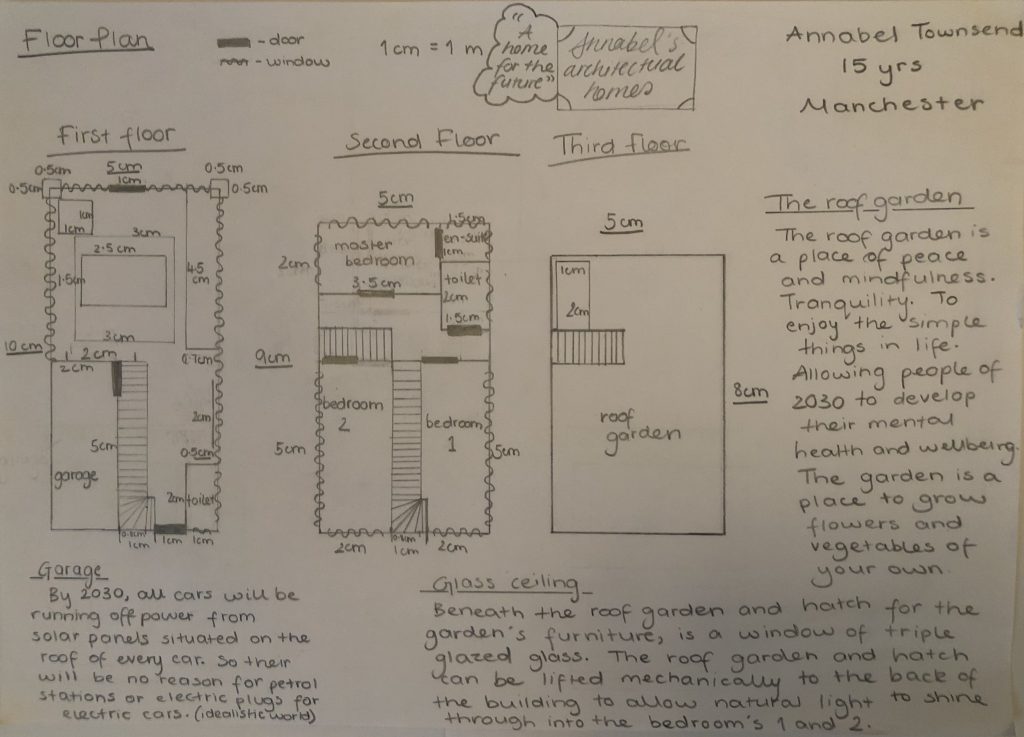 Floor plan
- door
- window
1cm = 1 m
"A
home
for the
future"
Annabel's
architectural
homes
Annabel Townsend
15 yrs
Manchester
First floor
0.5cm
5cm
1cm
0.5cm
0.5cm
0.5cm
1cm
1cm
3cm
2.5cm
1.5cm
4.5
cm
3cm
10cm
2cm
2cm
0.7cm
2cm
5cm
0.5cm
garage
2cm
toilet
1cm
1cm
1cm
Second Floor
5cm
1.5cm
master
bedroom
en-suite
1cm
2cm
3.5cm
toilet
2cm
1.5cm
9cm
bedroom
2
bedroom
1
5cm
5cm
2cm
1cm
2cm
Third floor
5cm
1cm
2cm
8cm
roof
garden
The roof garden
The roof garden is
a place of peace
and mindfulness.
Tranquility. To
enjoy the simple
things in life.
Allowing people of
2030 to develop
their mental
health and wellbeing.
The garden is a
place to grow
flowers and
vegetables of
your own.
Garage
By 2030, all cars will be
running off power from
solar panels situated on the
roof of every car. So their
will be no reason for petrol
stations or electric plugs for
electric cars. (idealistic world)
Glass ceiling
Beneath the roof garden and hatch for the
garden's furniture, is a window of triple
glazed glass. The roof garden and hatch
can be lifted mechanically to the back of
the building to allow natural light to shine
through into the bedroom's 1 and 2.